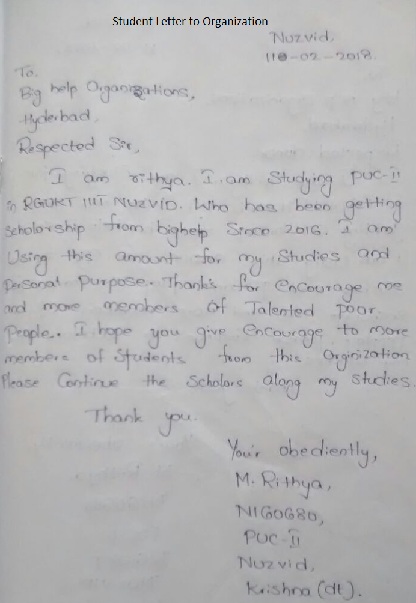 Student Letter to Organization
Nuzvid.
110-02-2018.
To,
Big help Organizations,
Hyderbad,
Respected Sir,
I am rithya. I am Studying PUC-II
in RGUKT IIIT NUZVID. Who has been getting
Scholarship from bighelp Since 2016. I am
Using this amount for my Studies and
Personal Purpose. Thanks for encourage me
and more members of Talented poor
People. I hope you give encourage to more
members of Students from this Orginization
Please Continue the Scholars along my studies
Thank you.
Your obediently,
M. Rithya,
N160680,
PUC-II
Nuzvid,
Krishna (dt).